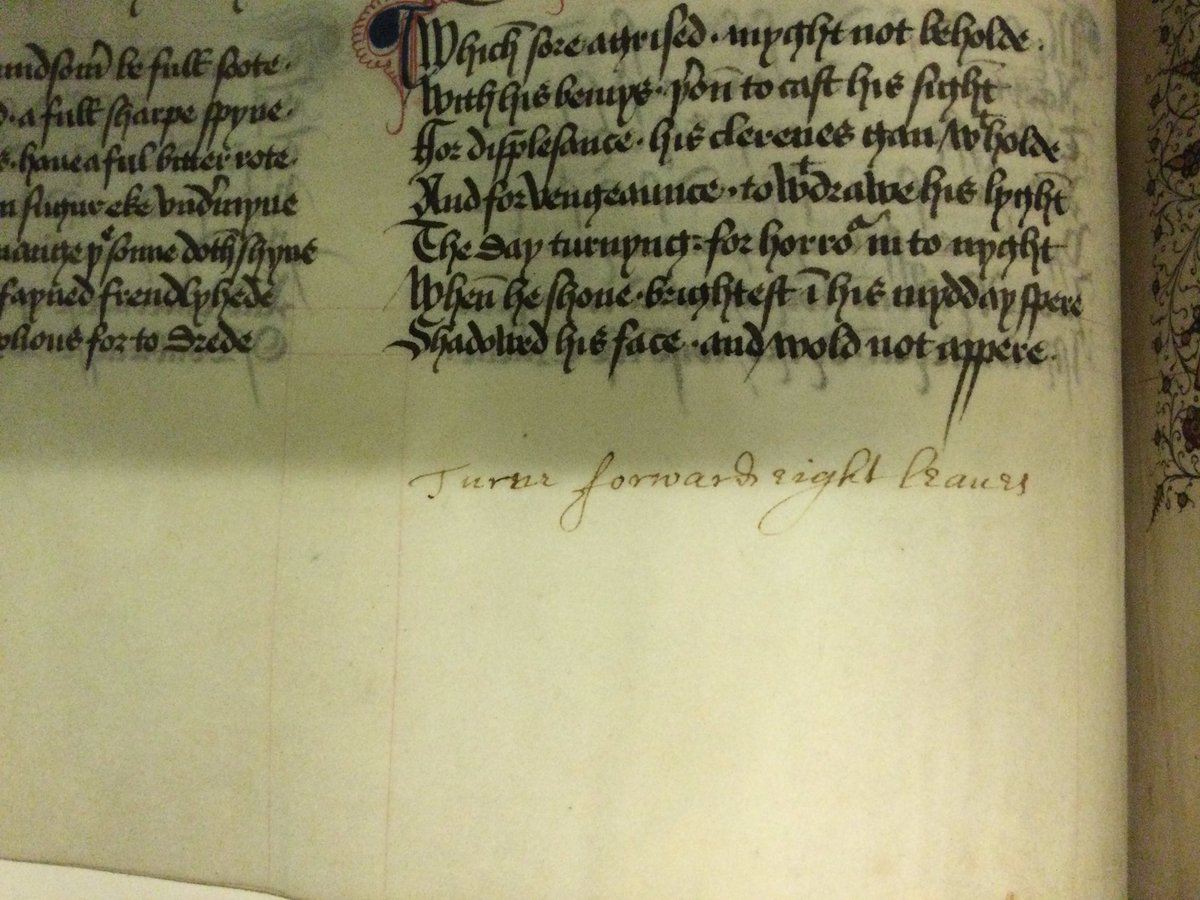 be full soote·
a full sharpe spyne·
haue a ful bitter rote·
sugur eke vnd'myne
þe sonne doth shyne
fayned frendlyhede
for to drede
Which sore agrised· myght not beholde·
With his bemys· þ'on to cast his sight
For displesance· his clerenes gan wͭholde
And for vengeaunce· to wͭdrawe his lyght
The day turnyng· for horroʳ in to nyght
When he shone· brightest ī his mydday spere
Shadwed his face· and wold not appere·
Turne forward eight leaues